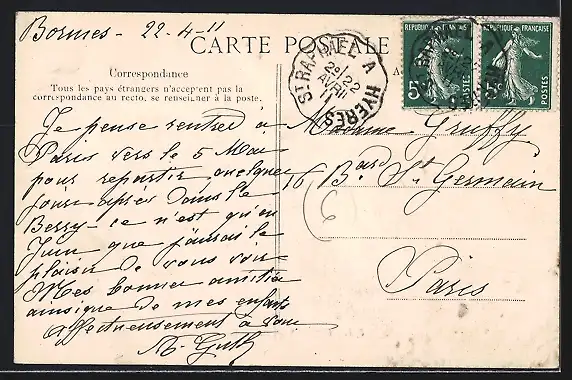 Bormes - 22-4-11
CARTE POSTALE
Correspondance
Tous les pays étrangers n'acceptent pas la
correspondance au recto, se renseigner à la poste.
A
RÉPUBLIQUE FRANÇAISE
5c
POSTES
RÉPUBLIQUE FRANÇAISE
5c
POSTES
ST RAPHAEL A HYÈRES
2º 22
AVRIL
11
Je pense rentrer à
Paris vers le 5 Mai
pour repartir quelques
jours après dans le
Berry - ce n'est qu'en
Juin que j'aurai le
plaisir de vous voir
Mes bonnes amitiés
ainsi que de mes enfants
affectueusement à vous
Madame Gruffy
16 Bard St Germain
Paris
6